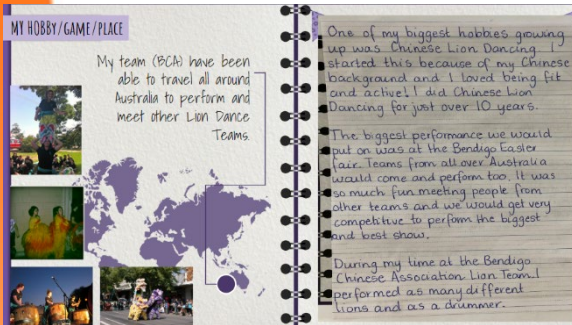 MY HOBBY/GAME/PLACE
My team (BCA) have been
able to travel all around
Australia to perform and
meet other Lion Dance
Teams.
One of my biggest hobbies growing
up was Chinese Lion Dancing. I
started this because of my Chinese
background and I loved being fit
and active! I did Chinese Lion
Dancing for just over 10 years.
The biggest performance we would
put on was at the Bendigo Easter
fair. Teams from all over Australia
would come and perform too. It was
so much fun meeting people from
other teams and we would get very
competitive to perform the biggest
and best show.
During my time at the Bendigo
Chinese Association Lion Team I
performed as many different
lions and as a drummer.